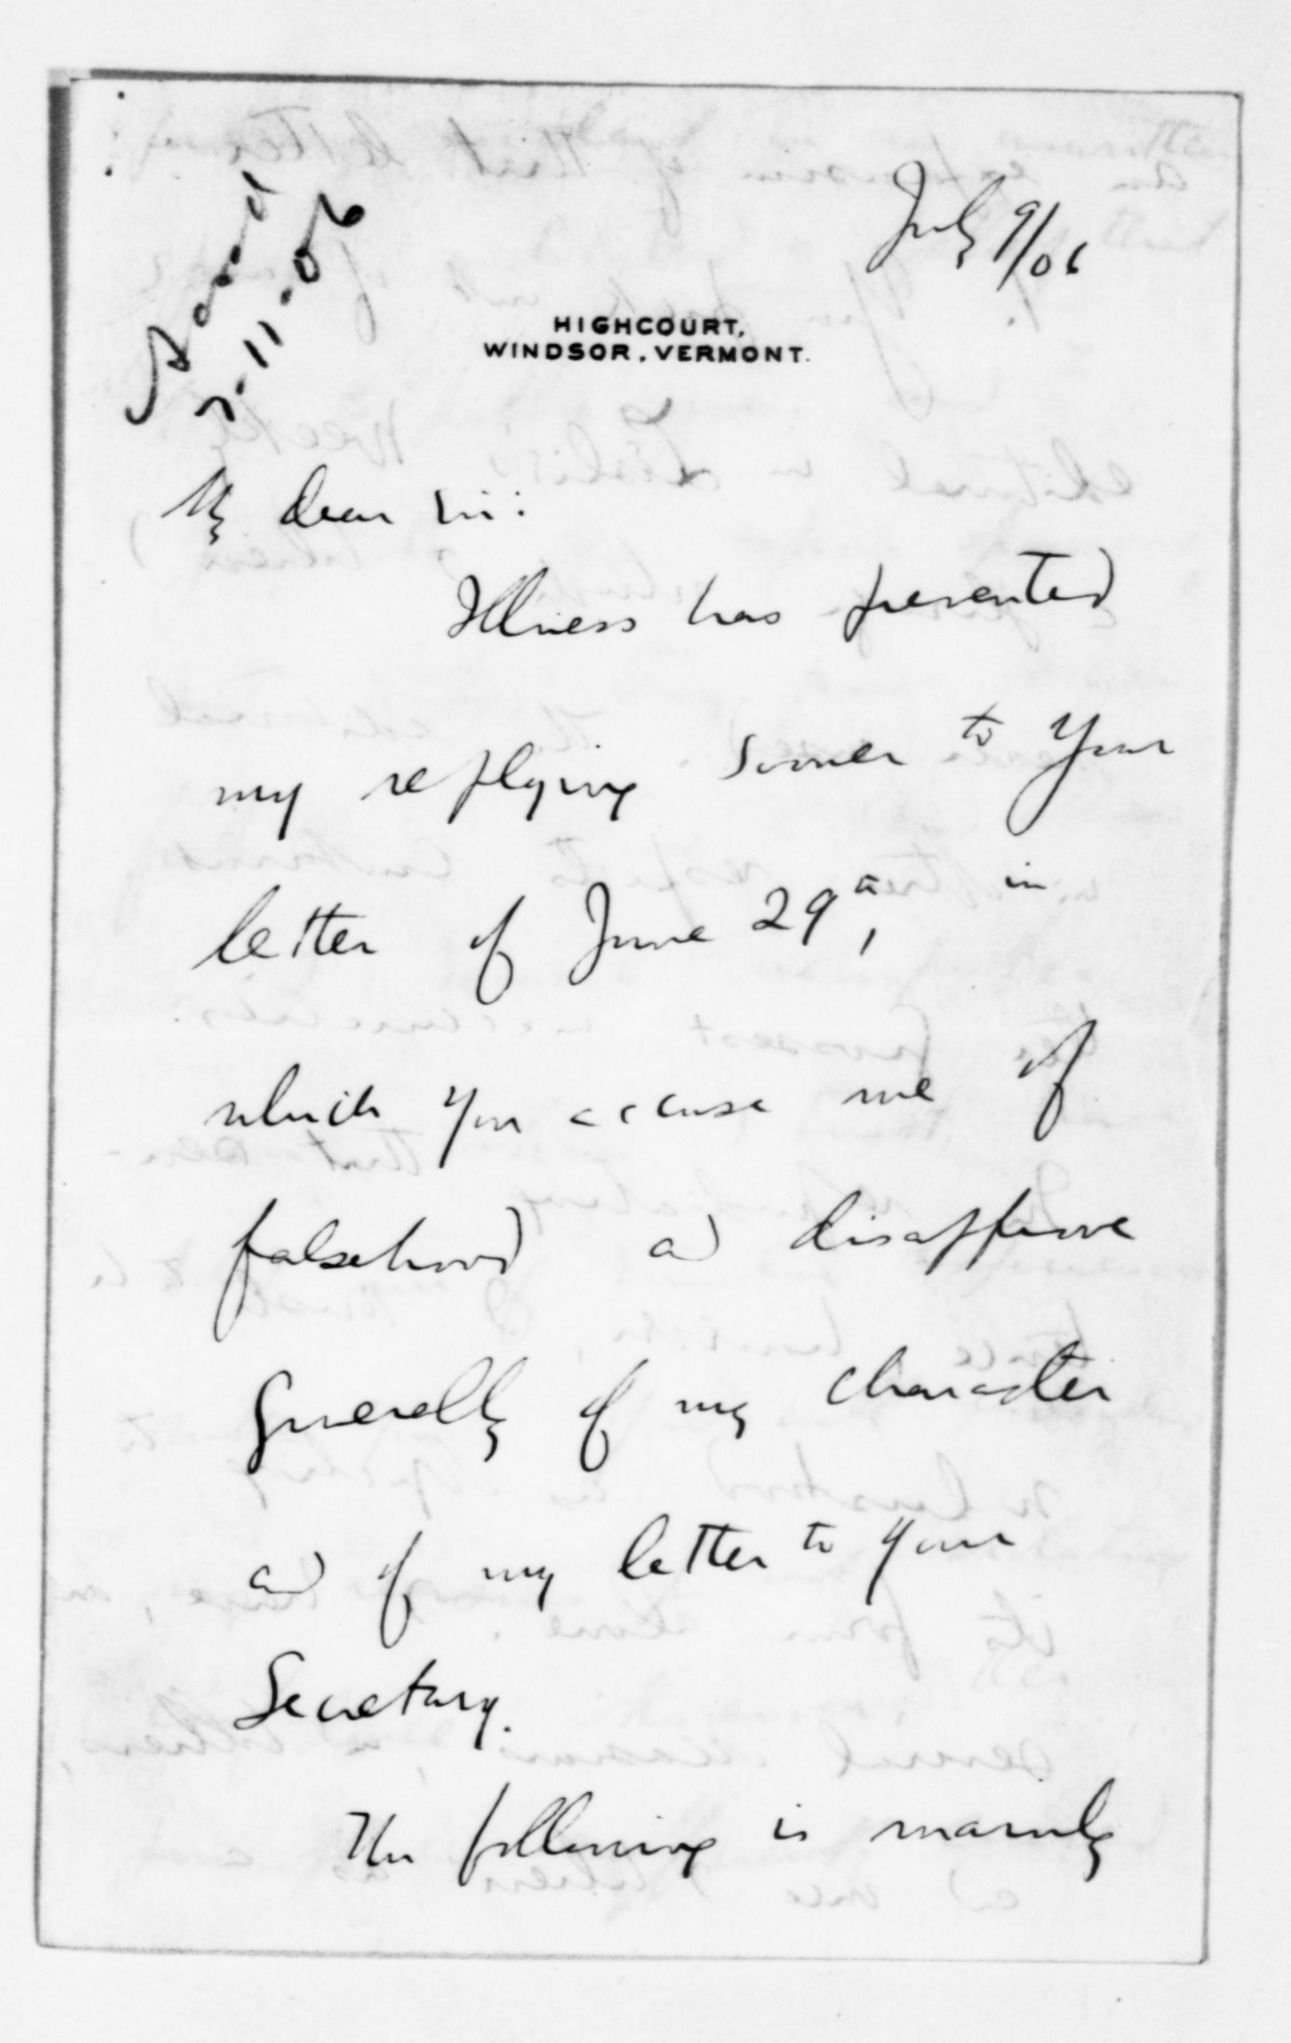 July 9/06
7-11-06
HIGHCOURT,
WINDSOR, VERMONT.
My dear Sir:
Illness has prevented
my replying sooner to your
letter of June 29th, in
which you accuse me of
falsehood and disapprove
generally of my character
and of my letter to your
Secretary.
The following is mainly